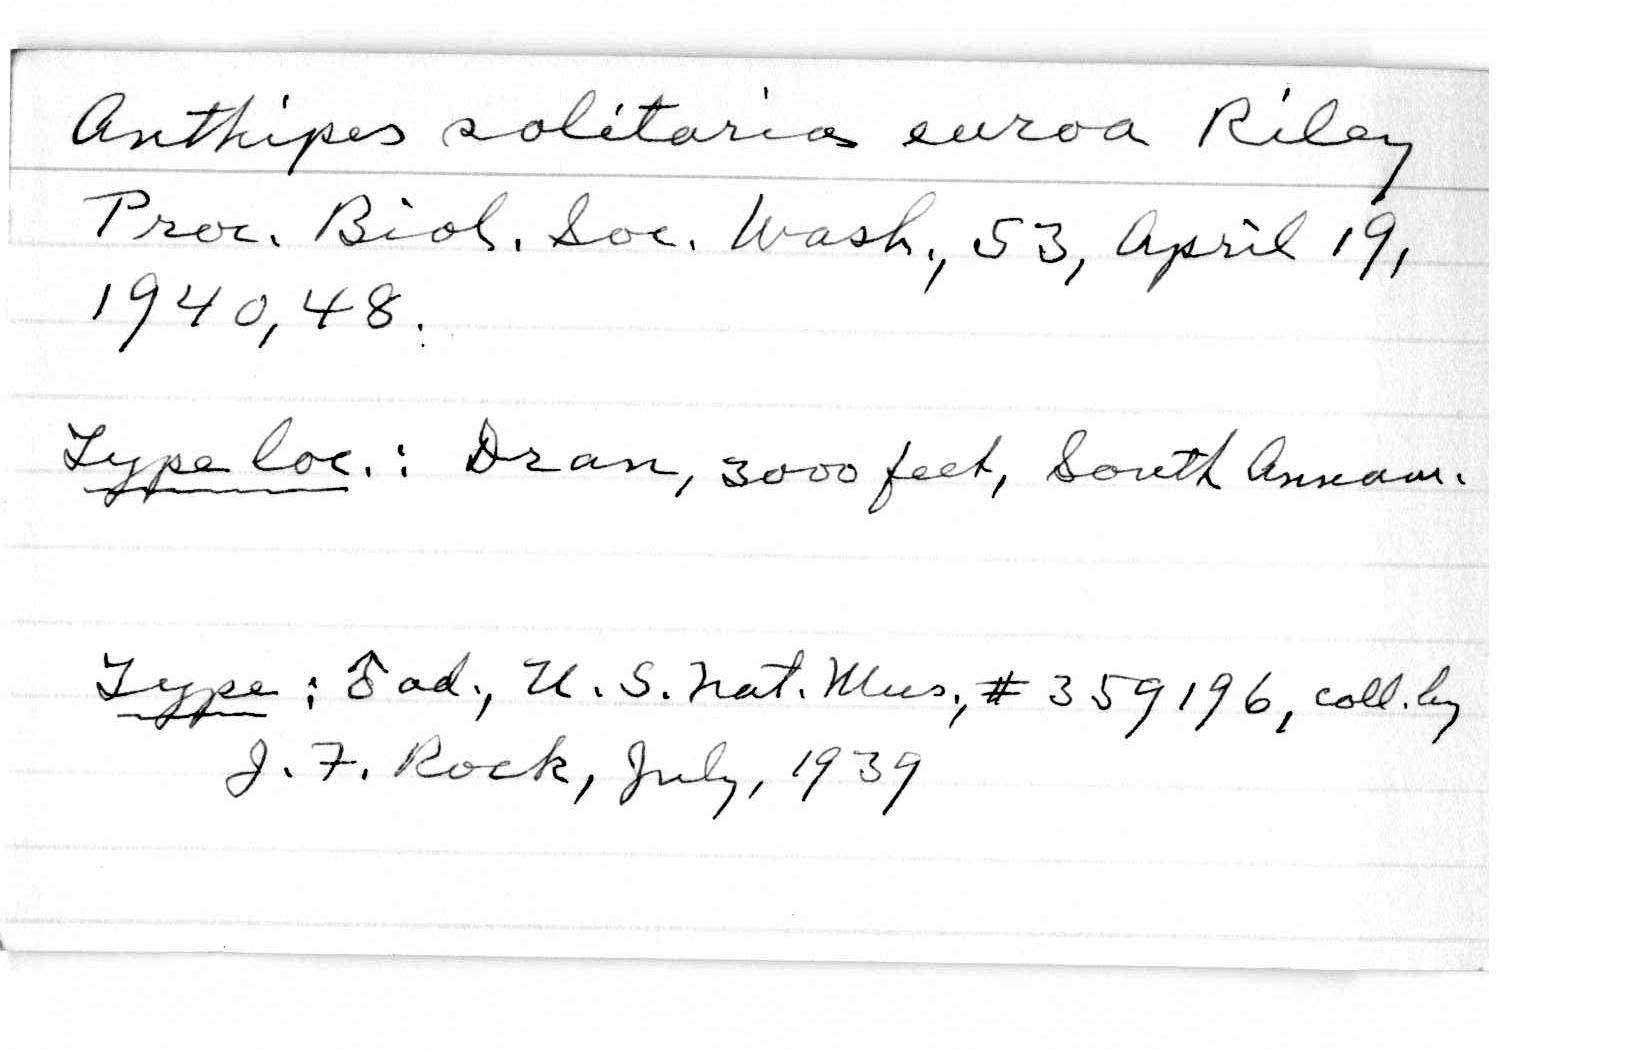 Anthipes solitaria euroa Riley
Proc. Biol. Soc. Wash., 53, April 19,
1940, 48.
Type loc.: Dran, 3000 feet, South Annam.
Type: ♂ ad., U.S. Nat. Mus., # 359196, coll. by
J. F. Rock, July, 1939